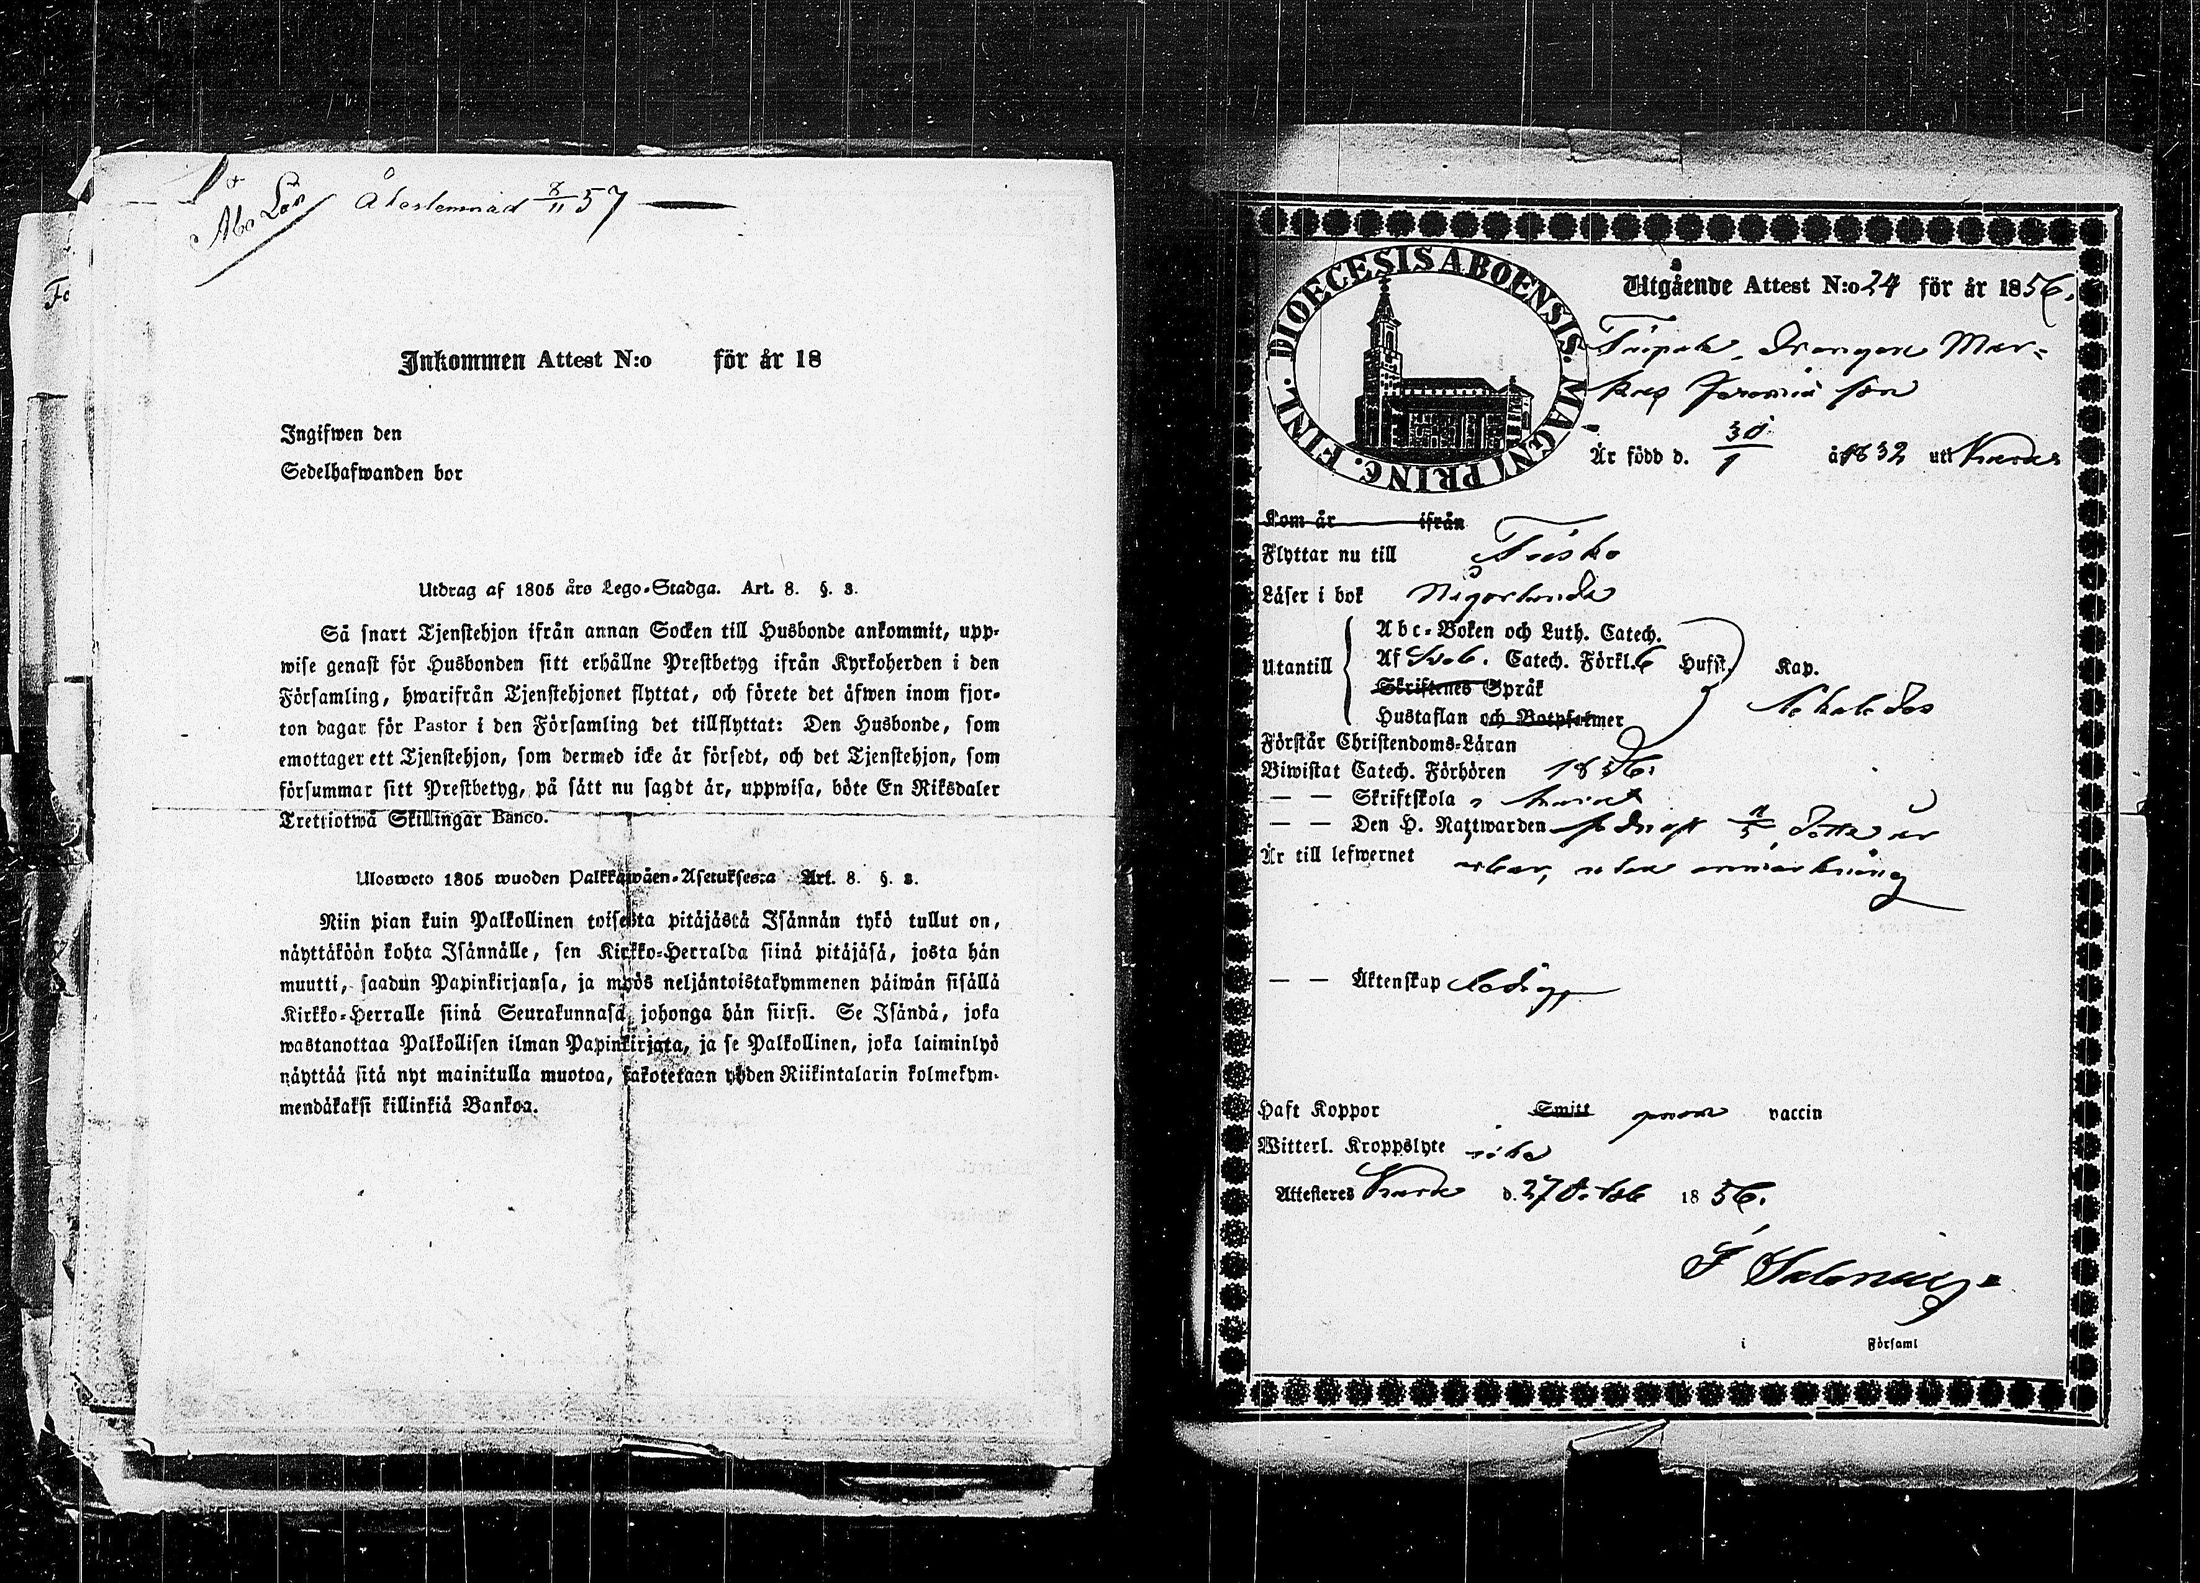 Åbo Län
Återlemnad 8/11 57
Inkommen Attest N:o för år 18
Ingifwen den
Sedelhafwanden bor
Utdrag af 1805 års Lego-Stadga. Art. 8. §. 3.
Så snart Tjenstehjon ifrån annan Socken till Husbonde ankommit, upp-
wise genast för Husbonden sitt erhållne Prestbetyg ifrån Kyrkoherden i den
Församling, hwarifrån Tjenstehjonet flyttat, och förete det äfwen inom fjor-
ton dagar för Pastor i den Församling det tillflyttat: Den Husbonde, som
emottager ett Tjenstehjon, som dermed icke är försedt, och det Tjenstehjon, som
försummar sitt Prestbetyg, på sätt nu sagdt är, uppwisa, böte En Riksdaler
Trettiotwå Skillingar Banco.
Ulosweto 1805 wuoden Palkkawäen-Asetuksesta Art. 8. §. 3.
Niin pian kuin Palkollinen toisesta pitäjästä Isännän tykö tullut on,
näyttäköön kohta Isännälle, sen Kirkko-Herralda siinä pitäjäsä, josta hän
muutti, saadun Papinkirjansa, ja myös neljäntoistakymmenen päiwän sisällä
Kirkko-Herralle siinä Seurakunnasa, johonga hän siirsi. Se Isändä, joka
wastanottaa Palkollisen ilman Papinkirjata, ja se Palkollinen, joka laiminlyö
näyttää sitä nyt mainitulla muotoa, sakotetaan yhden Riikintalarin kolmekym-
mendäkaksi killinkiä Bankoa.
DIOECESIS ABOENSIS. MAGNI PRINC. FINL.
Utgående Attest N:o 24 för år 1856.
Drengen Mar-
kus Jeremias son
Är född d. 30/1 år 1832 uti
Kom år ifrån
Flyttar nu till
Läser i bok någorlunda
Utantill
Abc-Boken och Luth. Catech.
Af Sveb. Catech. Förkl. 6 Hufst. Kap.
Skriftenes Språk
Hustaflan och Botpsalmer
Förstår Christendoms-Läran
Biwistat Catech. Förhören 1856.
— — Skriftskola
— — Den H. Nattwarden
Är till lefwernet
utan anmärkning
— — Äktenskap ledig
Haft Koppor Smitt genom vaccin
Witterl. Kroppslyte
Attesteres d. 27 Octob 1856.
i Församl